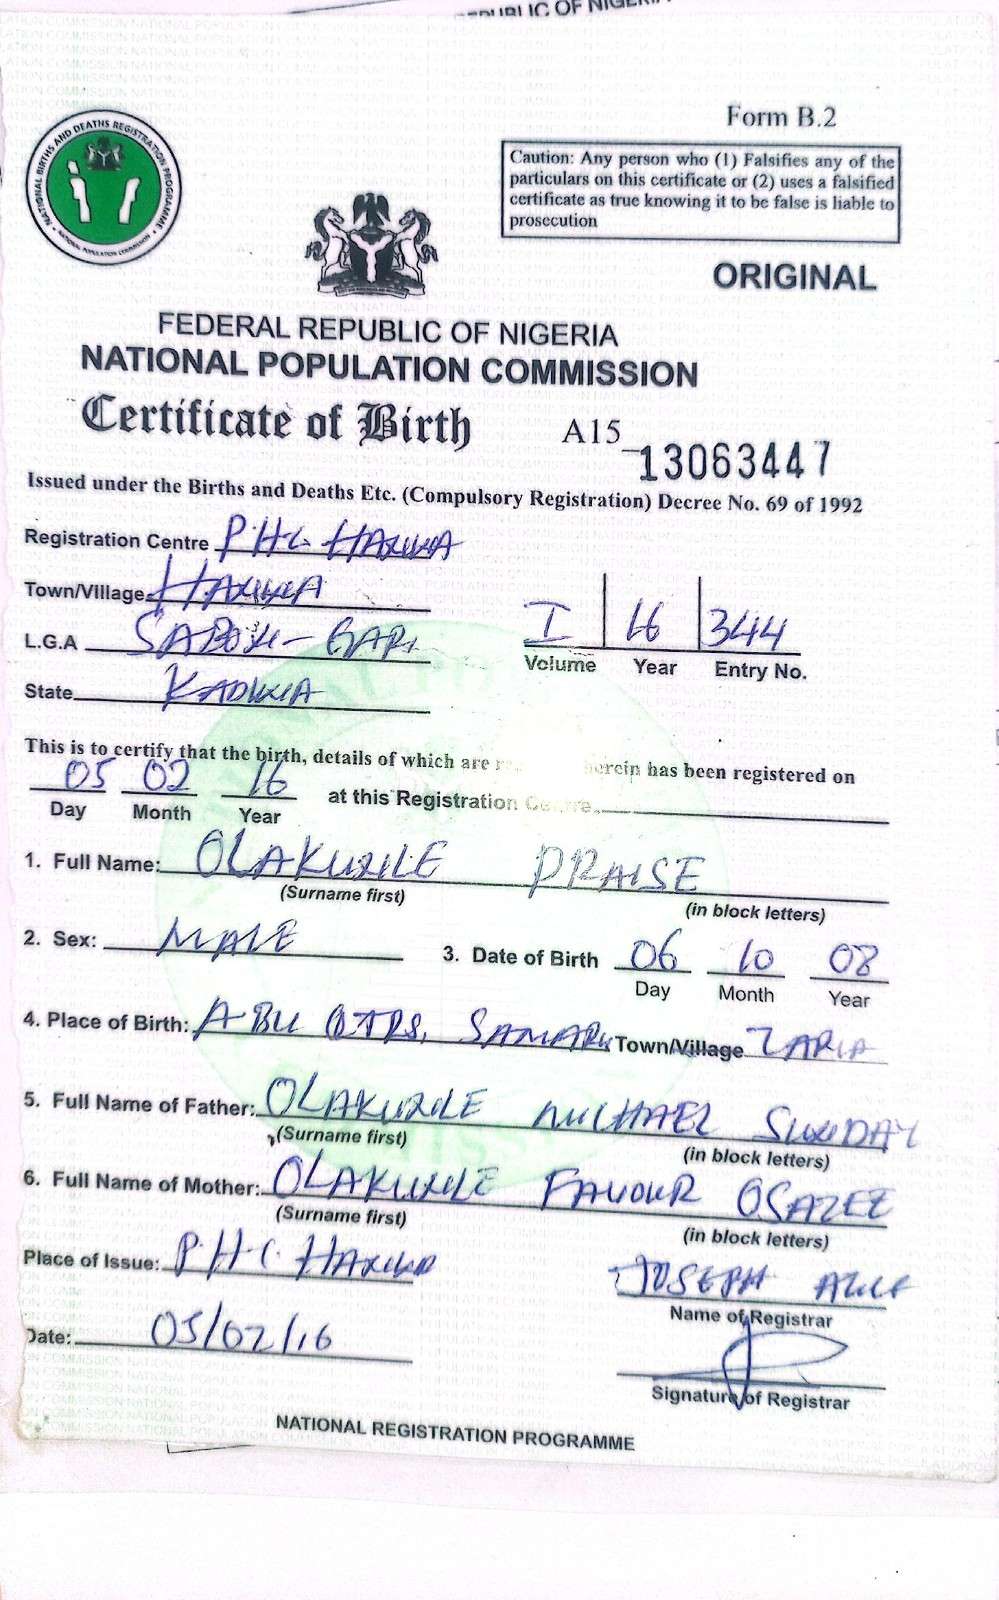 PUBLIC OF NIGERIA
Form B.2
Caution: Any person who (1) Falsifies any of the
particulars on this certificate or (2) uses a falsified
certificate as true knowing it to be false is liable to
prosecution
NATIONAL BIRTHS AND DEATHS REGISTRATION PROGRAMME
NATIONAL POPULATION COMMISSION
ORIGINAL
FEDERAL REPUBLIC OF NIGERIA
NATIONAL POPULATION COMMISSION
Certificate of Birth A15 13063447
Issued under the Births and Deaths Etc. (Compulsory Registration) Decree No. 69 of 1992
Registration Centre PHC HANWA
Town/Village HANWA
L.G.A SABON-GARI
State KADUNA
I 16 344
Volume Year Entry No.
This is to certify that the birth, details of which are herein has been registered on
05 02 16 at this Registration Centre
Day Month Year
1. Full Name: OLAKUNLE PRAISE
(Surname first) (in block letters)
2. Sex: MALE 3. Date of Birth 06 10 08
Day Month Year
4. Place of Birth: ABU QTRS, SAMARU Town/Village ZARIA
5. Full Name of Father: OLAKUNLE MICHAEL SUNDAY
(Surname first) (in block letters)
6. Full Name of Mother: OLAKUNLE FAVOUR OSAZEE
(Surname first) (in block letters)
Place of Issue: PHC HANWA JOSEPH
Name of Registrar
Date: 05/02/16
Signature of Registrar
NATIONAL REGISTRATION PROGRAMME